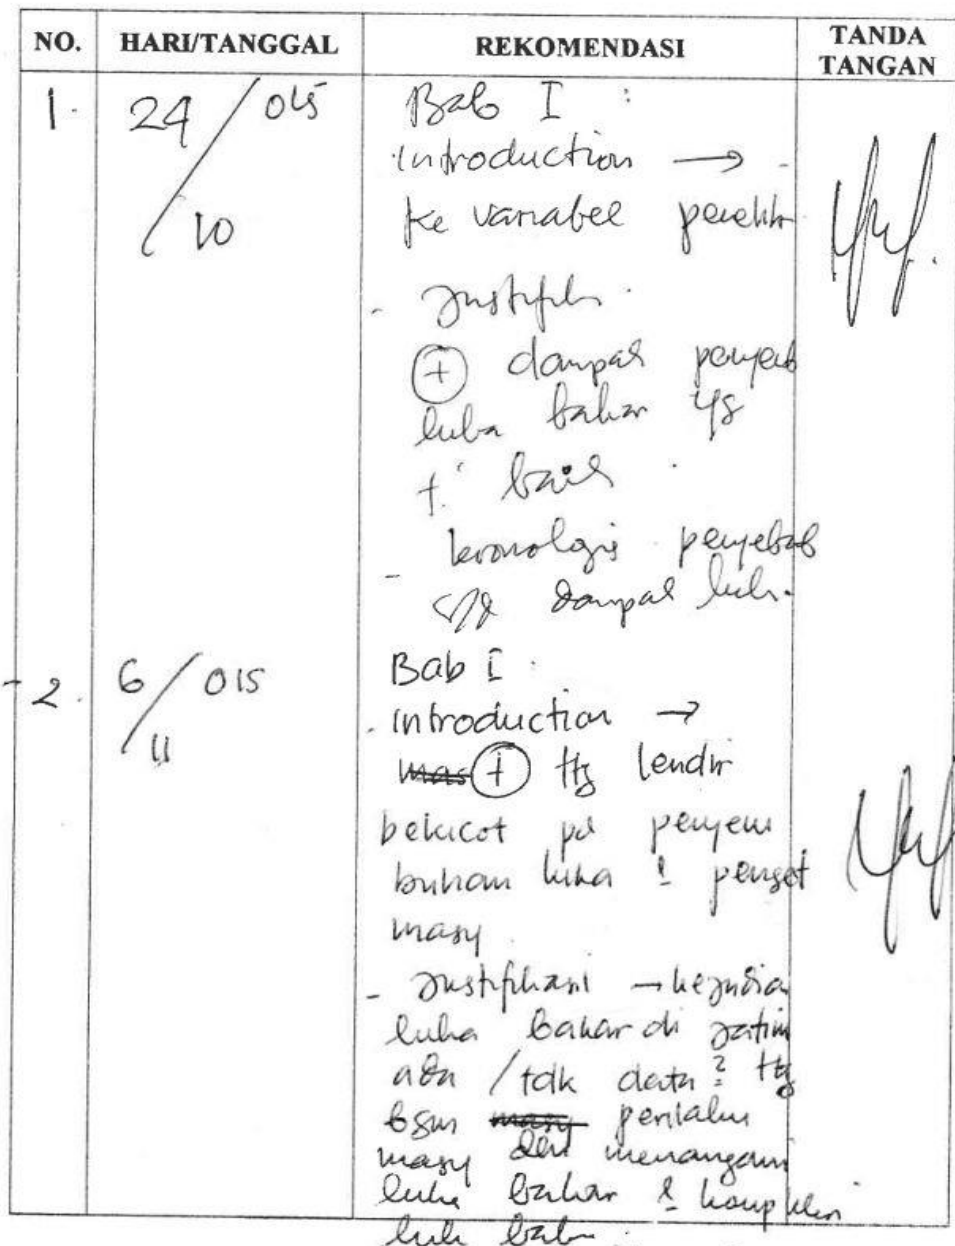 NO. HARI/TANGGAL REKOMENDASI TANDA TANGAN
1. 24/10 015 Bab I :
Introduction → -
ke variabel
- Justifik
(+) dampak penyeb
luka bakar yg
t. baik
- kronologis penyebab
s/d dampak luk.
2. 6/11 015 Bab I :
- introduction →
mas (+) ttg lendir
bekicot pd penyem
buhan luka & penget
masy
- Justifikasi → kejadian
luka bakar di jatim
ada / tdk data? ttg
bgm masy perilaku
masy dlm menangani
luka bakar & komplikasi
luk bakar